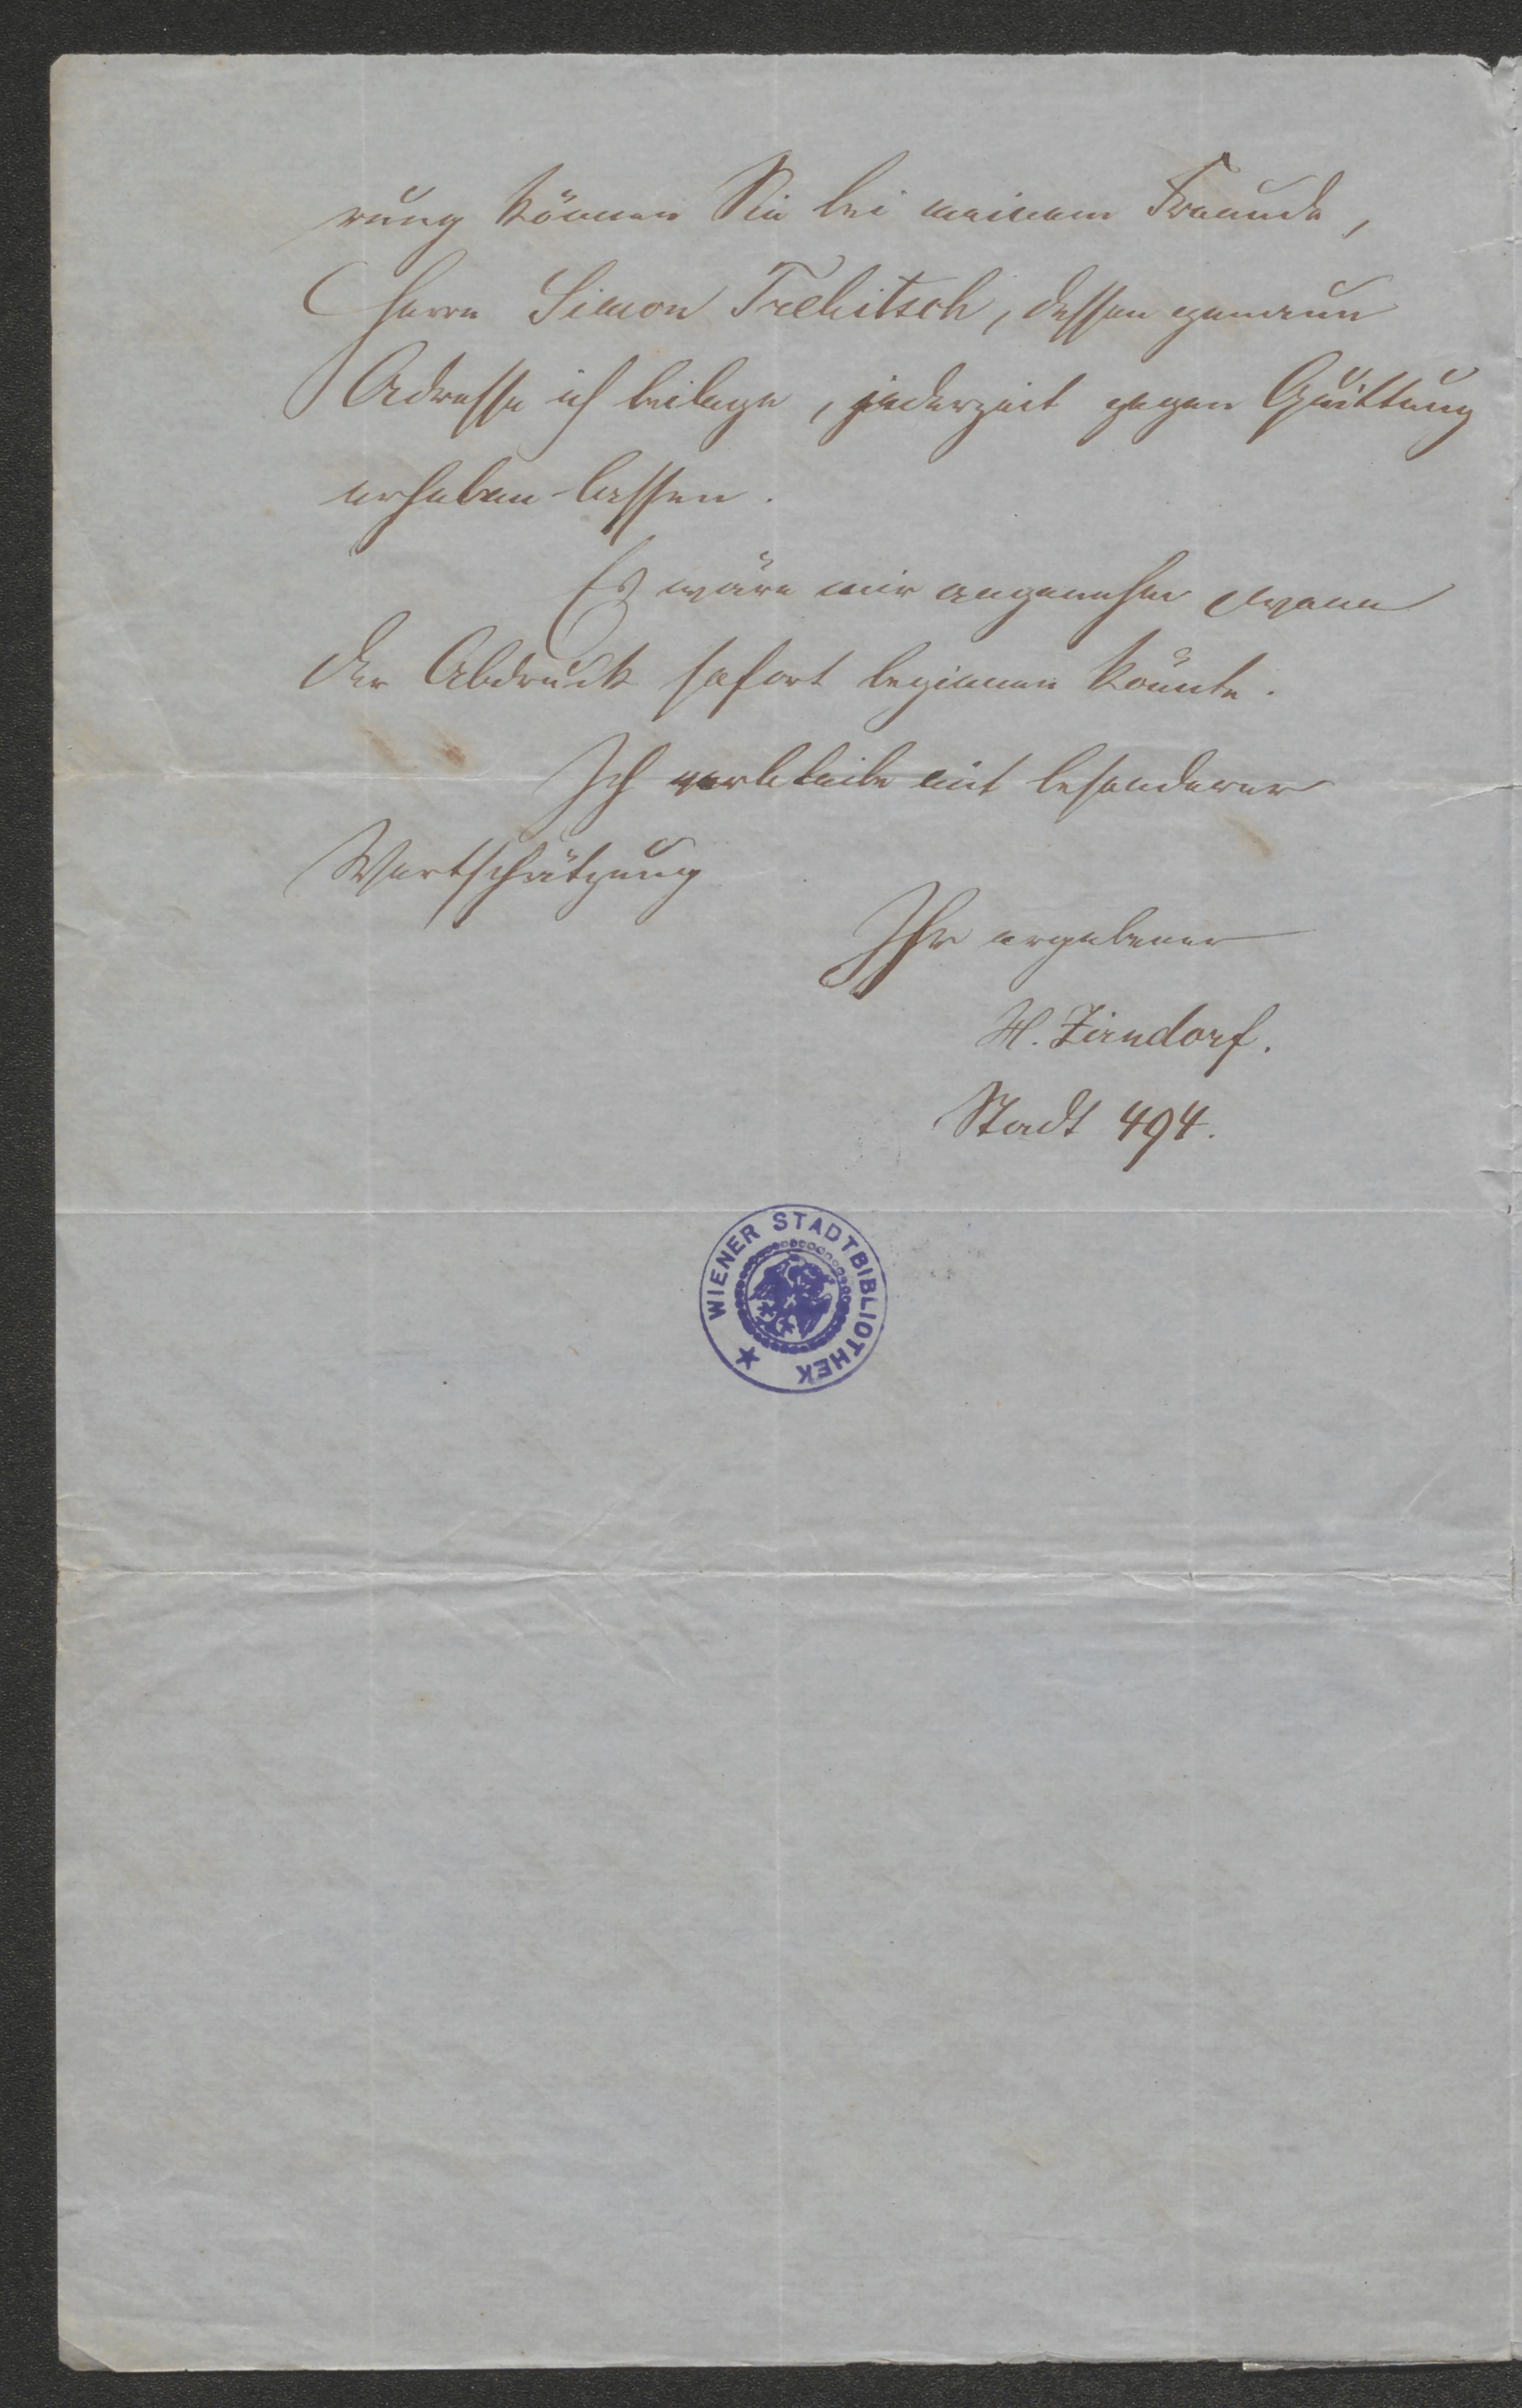 rung können Sie bei meinem Freunde,
Herrn Simon Trebitsch, dessen genaue
Adresse ich beilege, jederzeit gegen Quittung
erheben lassen.
Es wäre mir angenehm wenn
der Abdruck sofort beginnen könnte.
Ich verbleibe mit besonderer
Wertschätzung
Ihr ergebener
H. Zirndorf.
Stadt 494.
WIENER STADTBIBLIOTHEK